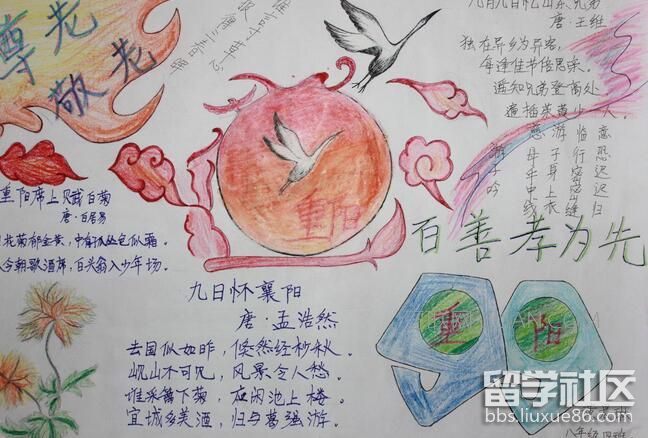 尊老
敬老
谁言寸草心
报得三春晖
九月九日忆山东兄弟
唐·王维
独在异乡为异客，
每逢佳节倍思亲。
遥知兄弟登高处
遍插茱萸少一人。
游子吟
慈母手中线
游子身上衣
临行密密缝
意恐迟迟归
重阳
重阳席上赋白菊
唐·白居易
花菊郁金黄，中有孤丛色似霜。
今朝歌酒席，白头翁入少年场。
百善孝为先
九日怀襄阳
唐·孟浩然
去国似如昨，倏然经杪秋。
岘山不可见，风景令人愁。
谁采篱下菊，应闲池上楼。
宜城多美酒，归与葛强游。
重
阳
八年级四班
留学社区
bbs.liuxue86.com